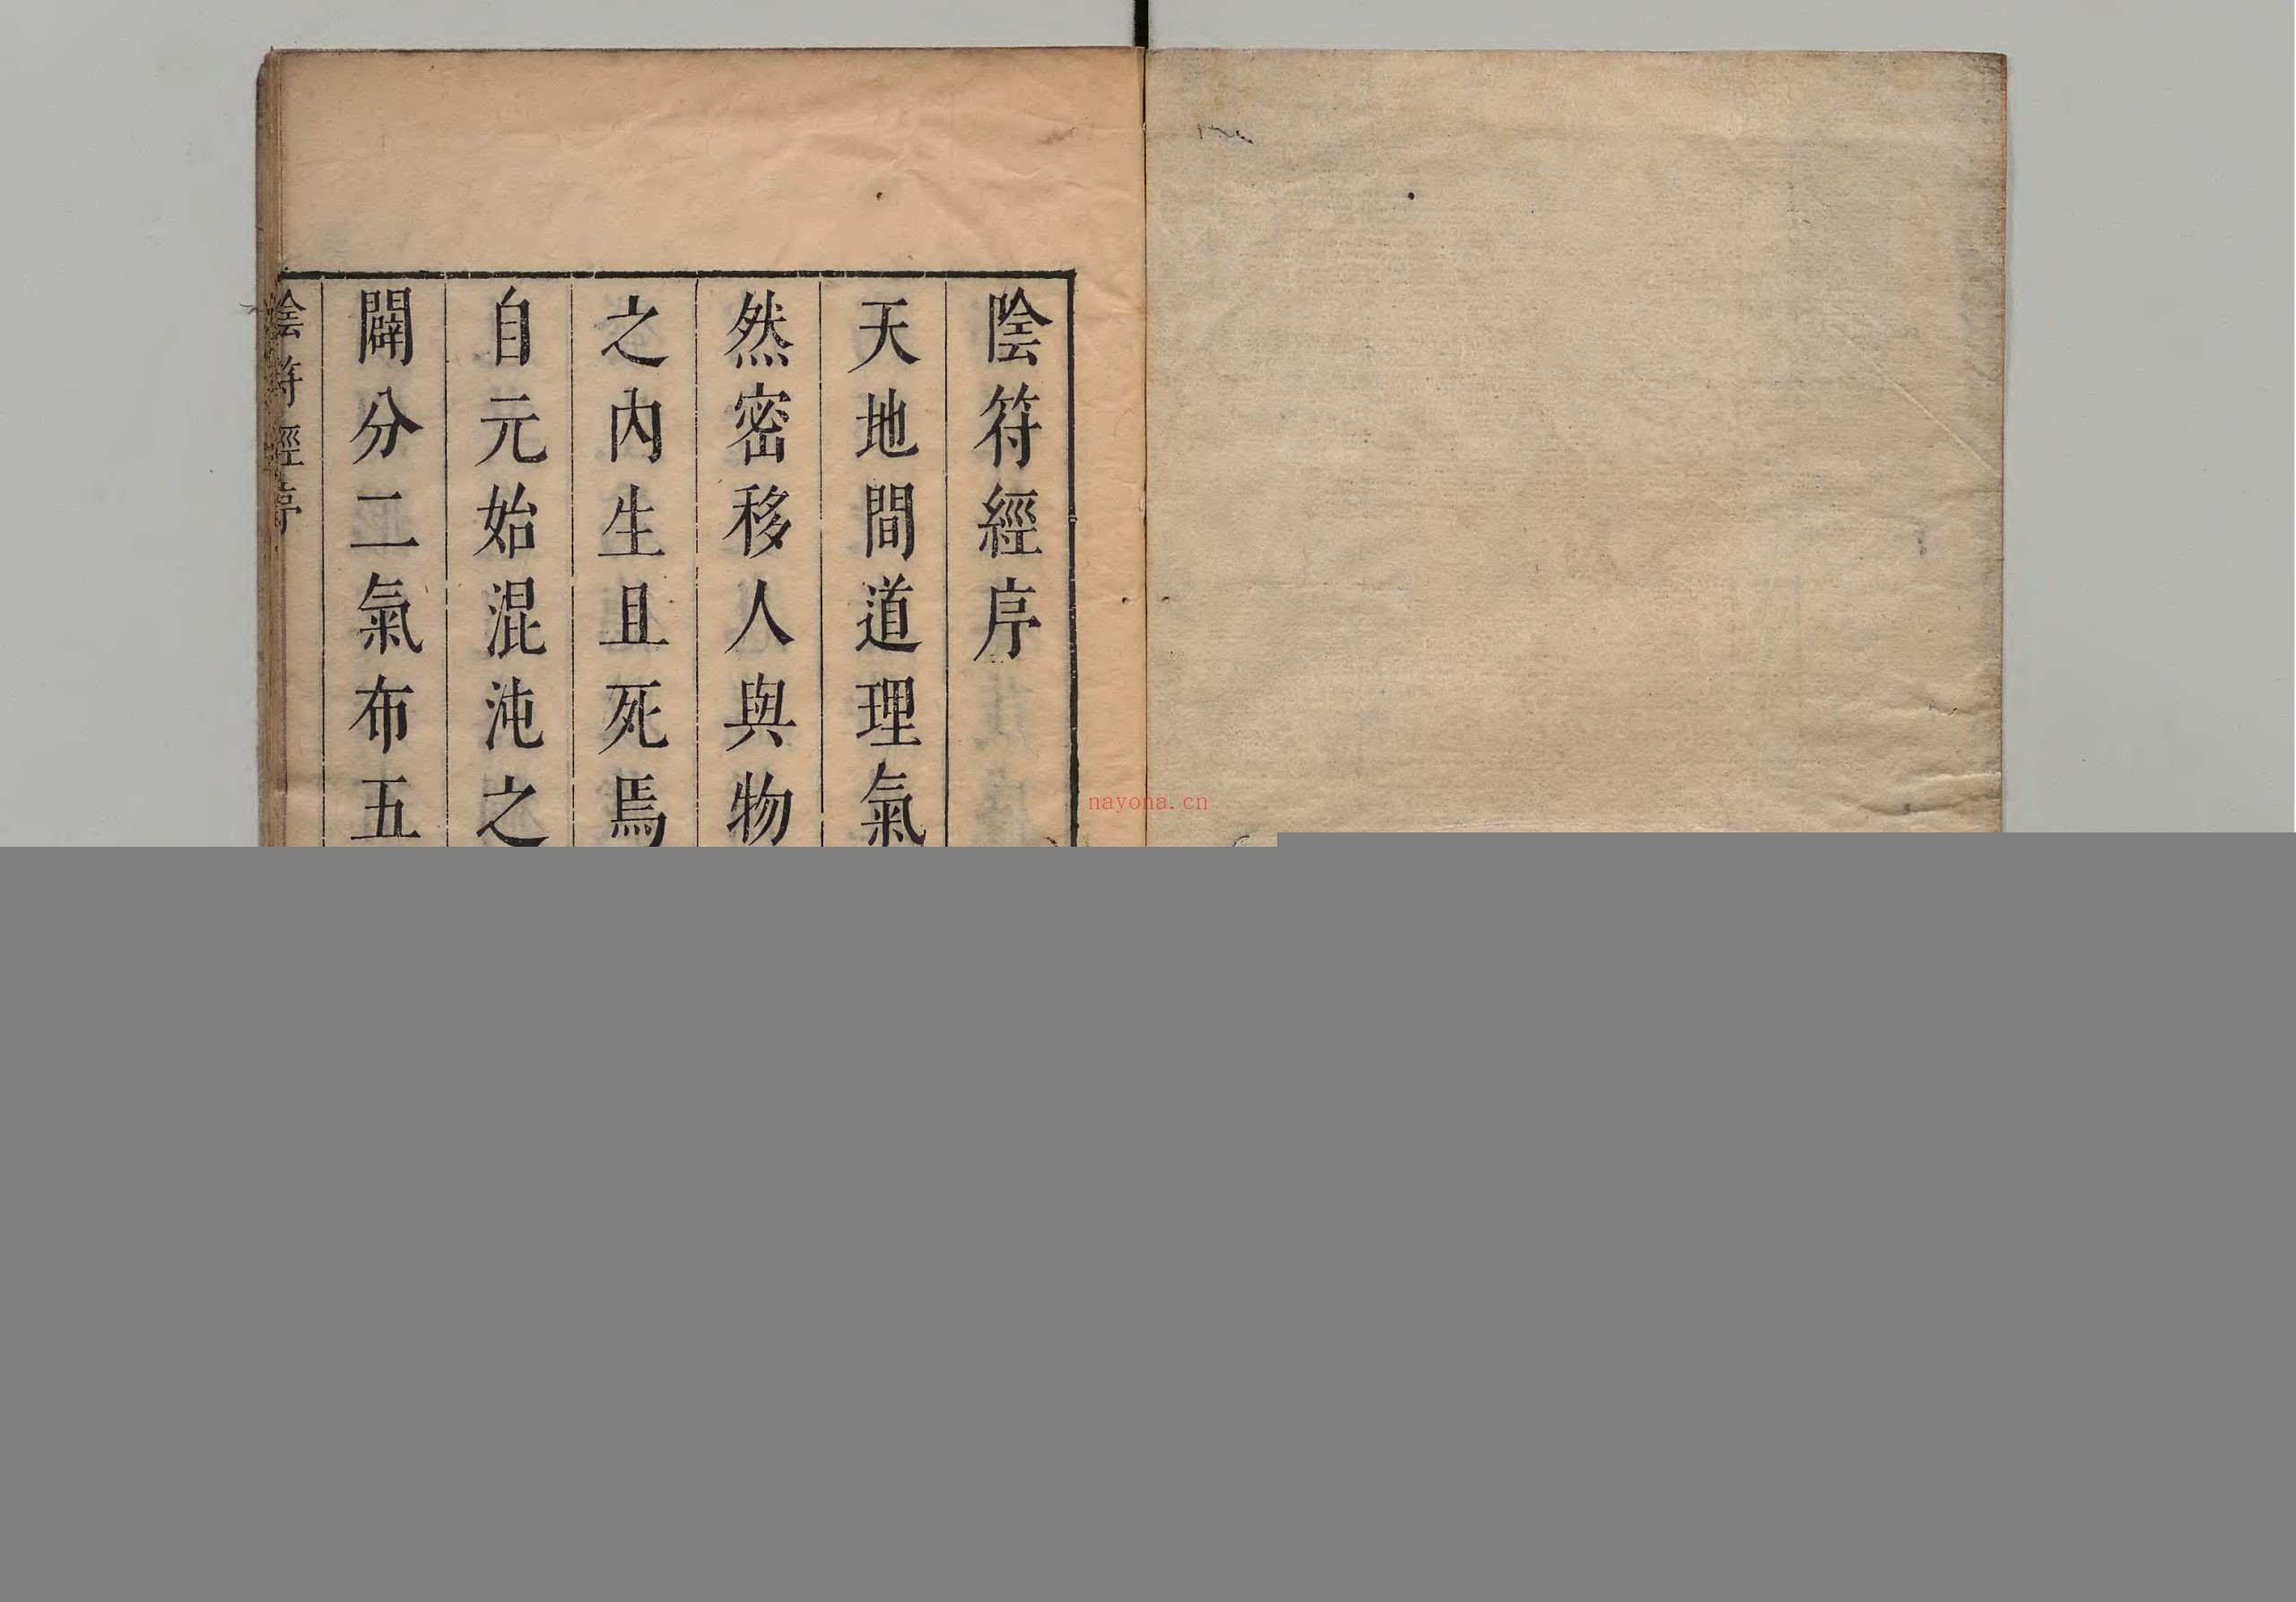 陰符經序
天地間道理氣
然密移人與物
之內生且死焉
自元始混沌之
闢分二氣布五
陰符經序
nayona.cn